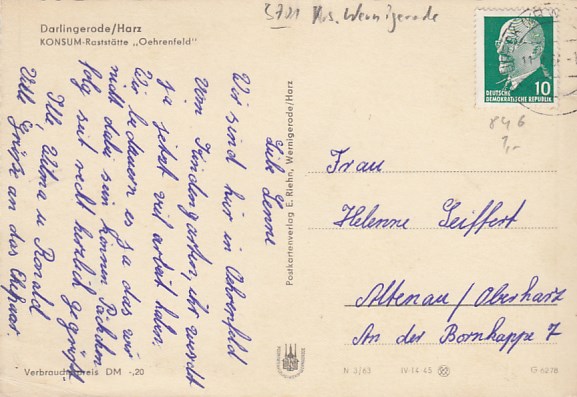 Darlingerode/Harz
KONSUM-Raststätte „Oehrenfeld"
3701 Krs. Wernigerode
DEUTSCHE
DEMOKRATISCHE REPUBLIK
10
846
1,-
Liebe Lenne
Wir sind hier in Oehrenfeld
vom Kindergarten, Ihr werdet
ja jetzt viel arbeit haben.
Wir bedauern es ja das wir
nicht dabei sein können
seit recht herzlich gegrüßt
Ille, Wilma u. Ronald
Viele Grüße an das Ehepaar
Postkartenverlag E. Riehn, Wernigerode/Harz
Frau
Helenne Seiffert
Altenau/Oberharz
An der Bornkappe 7
Verbraucherpreis DM -,20
N 3/63 IV-14-45 G 6278